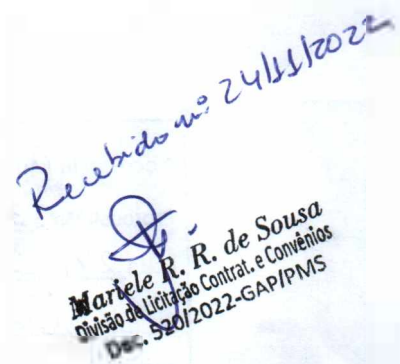 Recebido nº: 24/11/2022
Mariele R. R. de Sousa
Divisão de Licitação Contrat. e Convênios
Dec. 520/2022-GAP/PMS